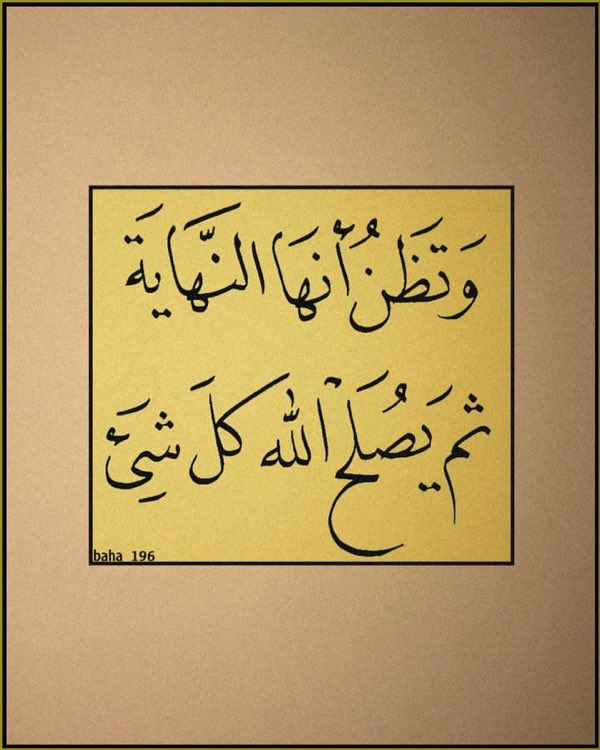 وَتَظَنُ أنهَا النَّهايَة
ثم يَصُلَح الله كلَ شِيَئ
baha 196